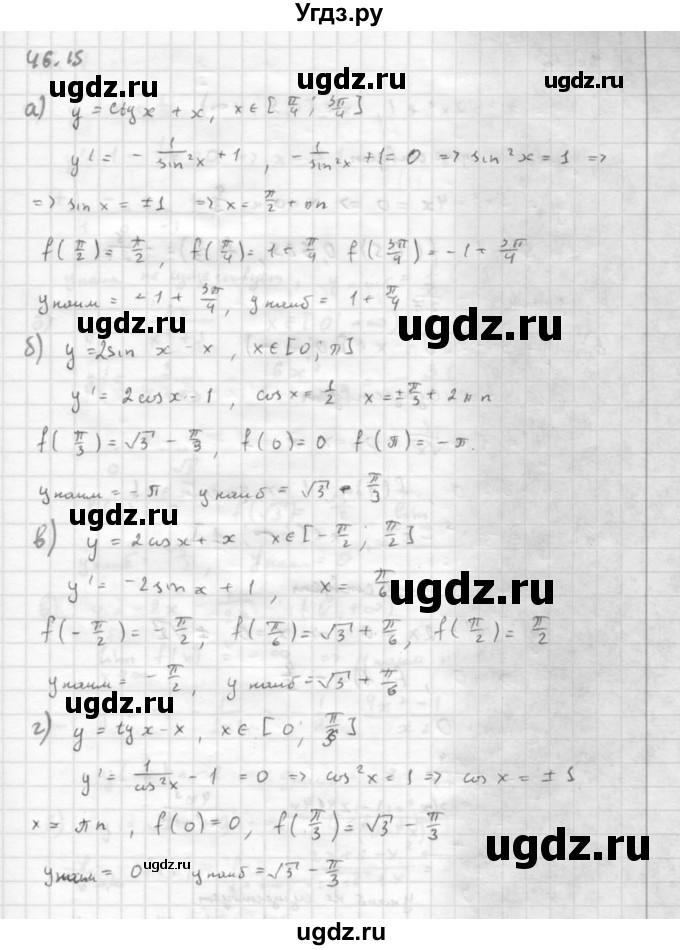 Угдз.ру
46.15
а) y = ctg x + x, x ∈ [π/4; 3π/4]
y' = - 1/sin²x + 1, - 1/sin²x + 1 = 0 => sin²x = 1 =>
ugdz.ru ugdz.ru
=> sin x = ±1 => x = π/2 + πn
f(π/2) = π/2, f(π/4) = 1 + π/4 f(3π/4) = -1 + 3π/4
ugdz.ru
y наим = -1 + 3π/4, y наиб = 1 + π/4
ugdz.ru
б) y = 2sin x - x, x ∈ [0; π]
y' = 2cos x - 1, cos x = 1/2 x = ±π/3 + 2πn
f(π/3) = √3 - π/3, f(0) = 0 f(π) = -π.
y наим = -π y наиб = √3 - π/3
ugdz.ru
в) y = 2cos x + x x ∈ [-π/2; π/2]
y' = -2sin x + 1, x = π/6
ugdz.ru
f(-π/2) = -π/2, f(π/6) = √3 + π/6, f(π/2) = π/2
y наим = -π/2, y наиб = √3 + π/6
ugdz.ru
г) y = tg x - x, x ∈ [0; π/3]
y' = 1/cos²x - 1 = 0 => cos²x = 1 => cos x = ±1
x = πn, f(0) = 0, f(π/3) = √3 - π/3
ugdz.ru
y наим = 0 y наиб = √3 - π/3
ugdz.ru
ugdz.ru